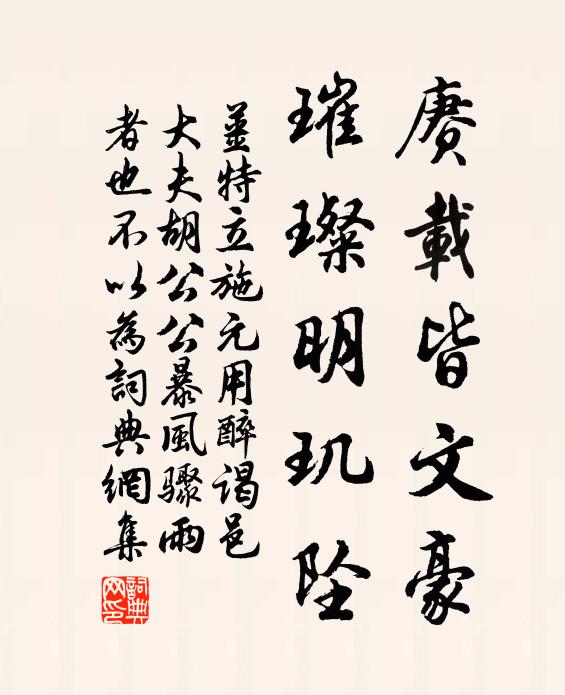 賡載皆文豪
璀璨明玑坠
薑特立施元用醉谒邑
大夫胡公公暴風驟雨
者也不以為詞典網集
詞典网印